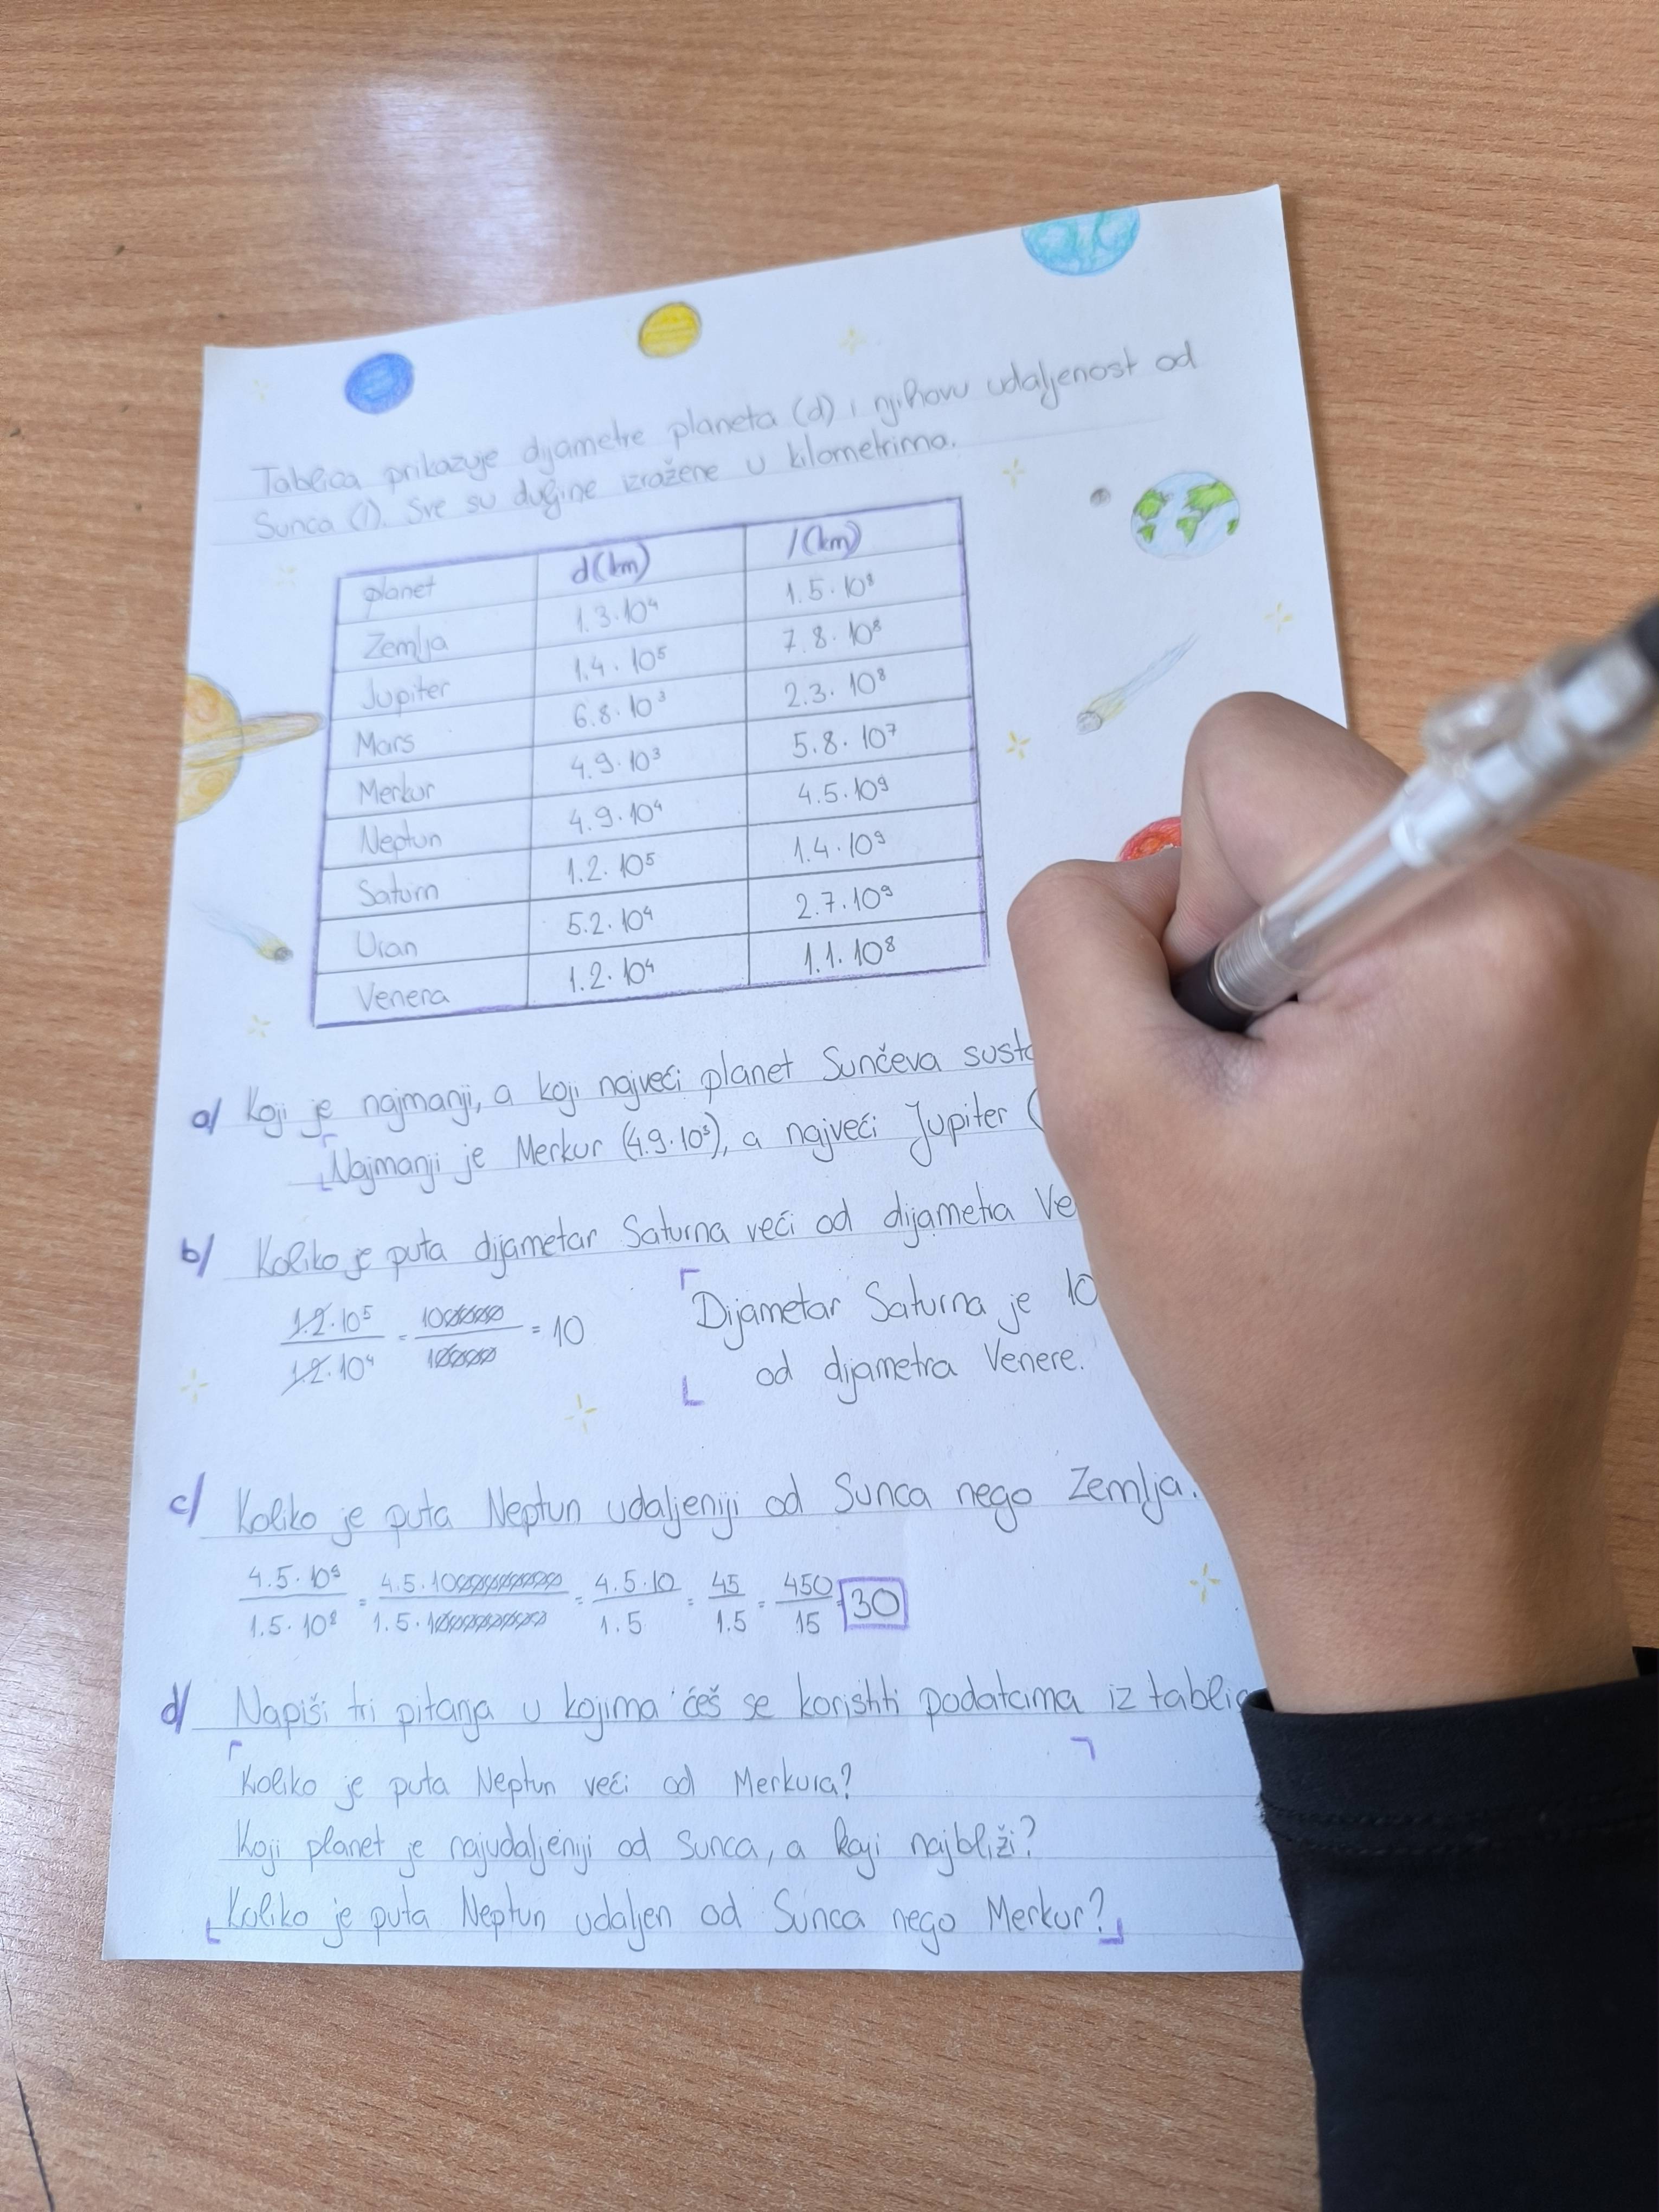 Tablica prikazuje dijametre planeta (d) i njihovu udaljenost od
Sunca (l). Sve su dužine izražene u kilometrima.
planet d(km) l(km)
Zemlja 1.3·10⁴ 1.5·10⁸
Jupiter 1.4·10⁵ 7.8·10⁸
Mars 6.8·10³ 2.3·10⁸
Merkur 4.9·10³ 5.8·10⁷
Neptun 4.9·10⁴ 4.5·10⁹
Saturn 1.2·10⁵ 1.4·10⁹
Uran 5.2·10⁴ 2.7·10⁹
Venera 1.2·10⁴ 1.1·10⁸
a) Koji je najmanji, a koji najveći planet Sunčeva susta
Najmanji je Merkur (4.9·10³), a najveći Jupiter (
b) Koliko je puta dijametar Saturna veći od dijametra Ve
1.2·10⁵ / 1.2·10⁴ = 1000000 / 10000 = 10
Dijametar Saturna je 10
od dijametra Venere.
c) Koliko je puta Neptun udaljeniji od Sunca nego Zemlja.
4.5·10⁹ / 1.5·10⁸ = = 4.5·10 / 1.5 = 45 / 1.5 = 450 / 15 = 30
d) Napiši tri pitanja u kojima ćeš se koristiti podatcima iz tablic
Koliko je puta Neptun veći od Merkura?
Koji planet je najudaljeniji od Sunca, a koji najbliži?
Koliko je puta Neptun udaljen od Sunca nego Merkur?